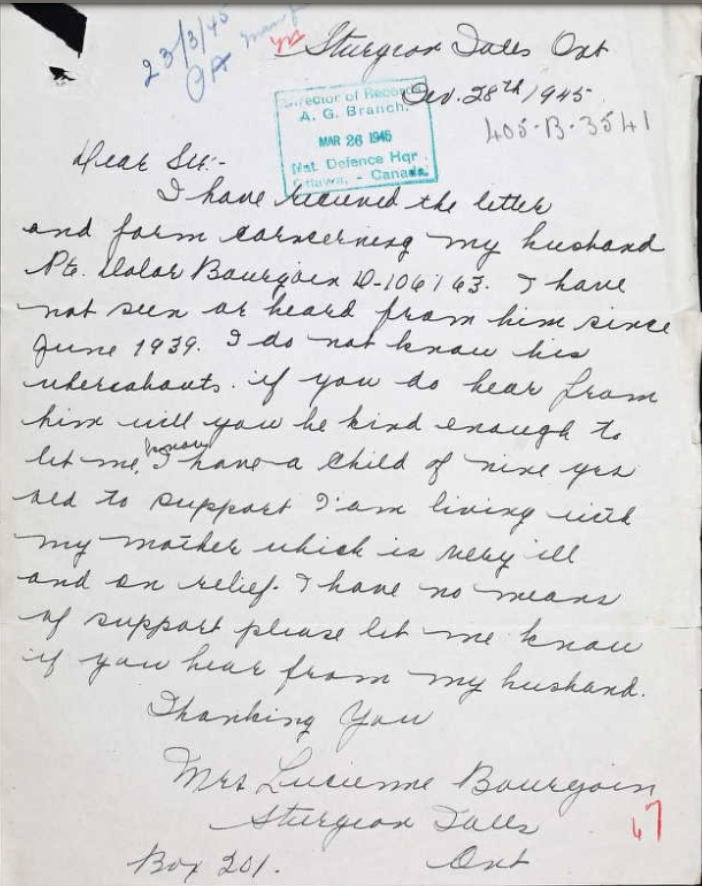 23/3/45
Sturgeon Falls Ont
28th/1945
Director of Records
A. G. Branch.
MAR 26 1945
Nat. Defence Hqr.
Ottawa. - Canada.
405-B-3541
Dear Sir:-
I have recieved the letter
and form concerning my husband
Pte. Dolor Bourgoin D-106163. I have
not seen or heard from him since
June 1939. I do not know his
whereabouts. if you do hear from
him will you be kind enough to
let me know, I have a child of nine yrs
old to support I'am living with
my mother which is very ill
and on relief. I have no means
of support please let me know
if you hear from my husband.
Thanking You
Mrs Lucienne Bourgoin
Sturgeon Falls
Box 201. Ont
67